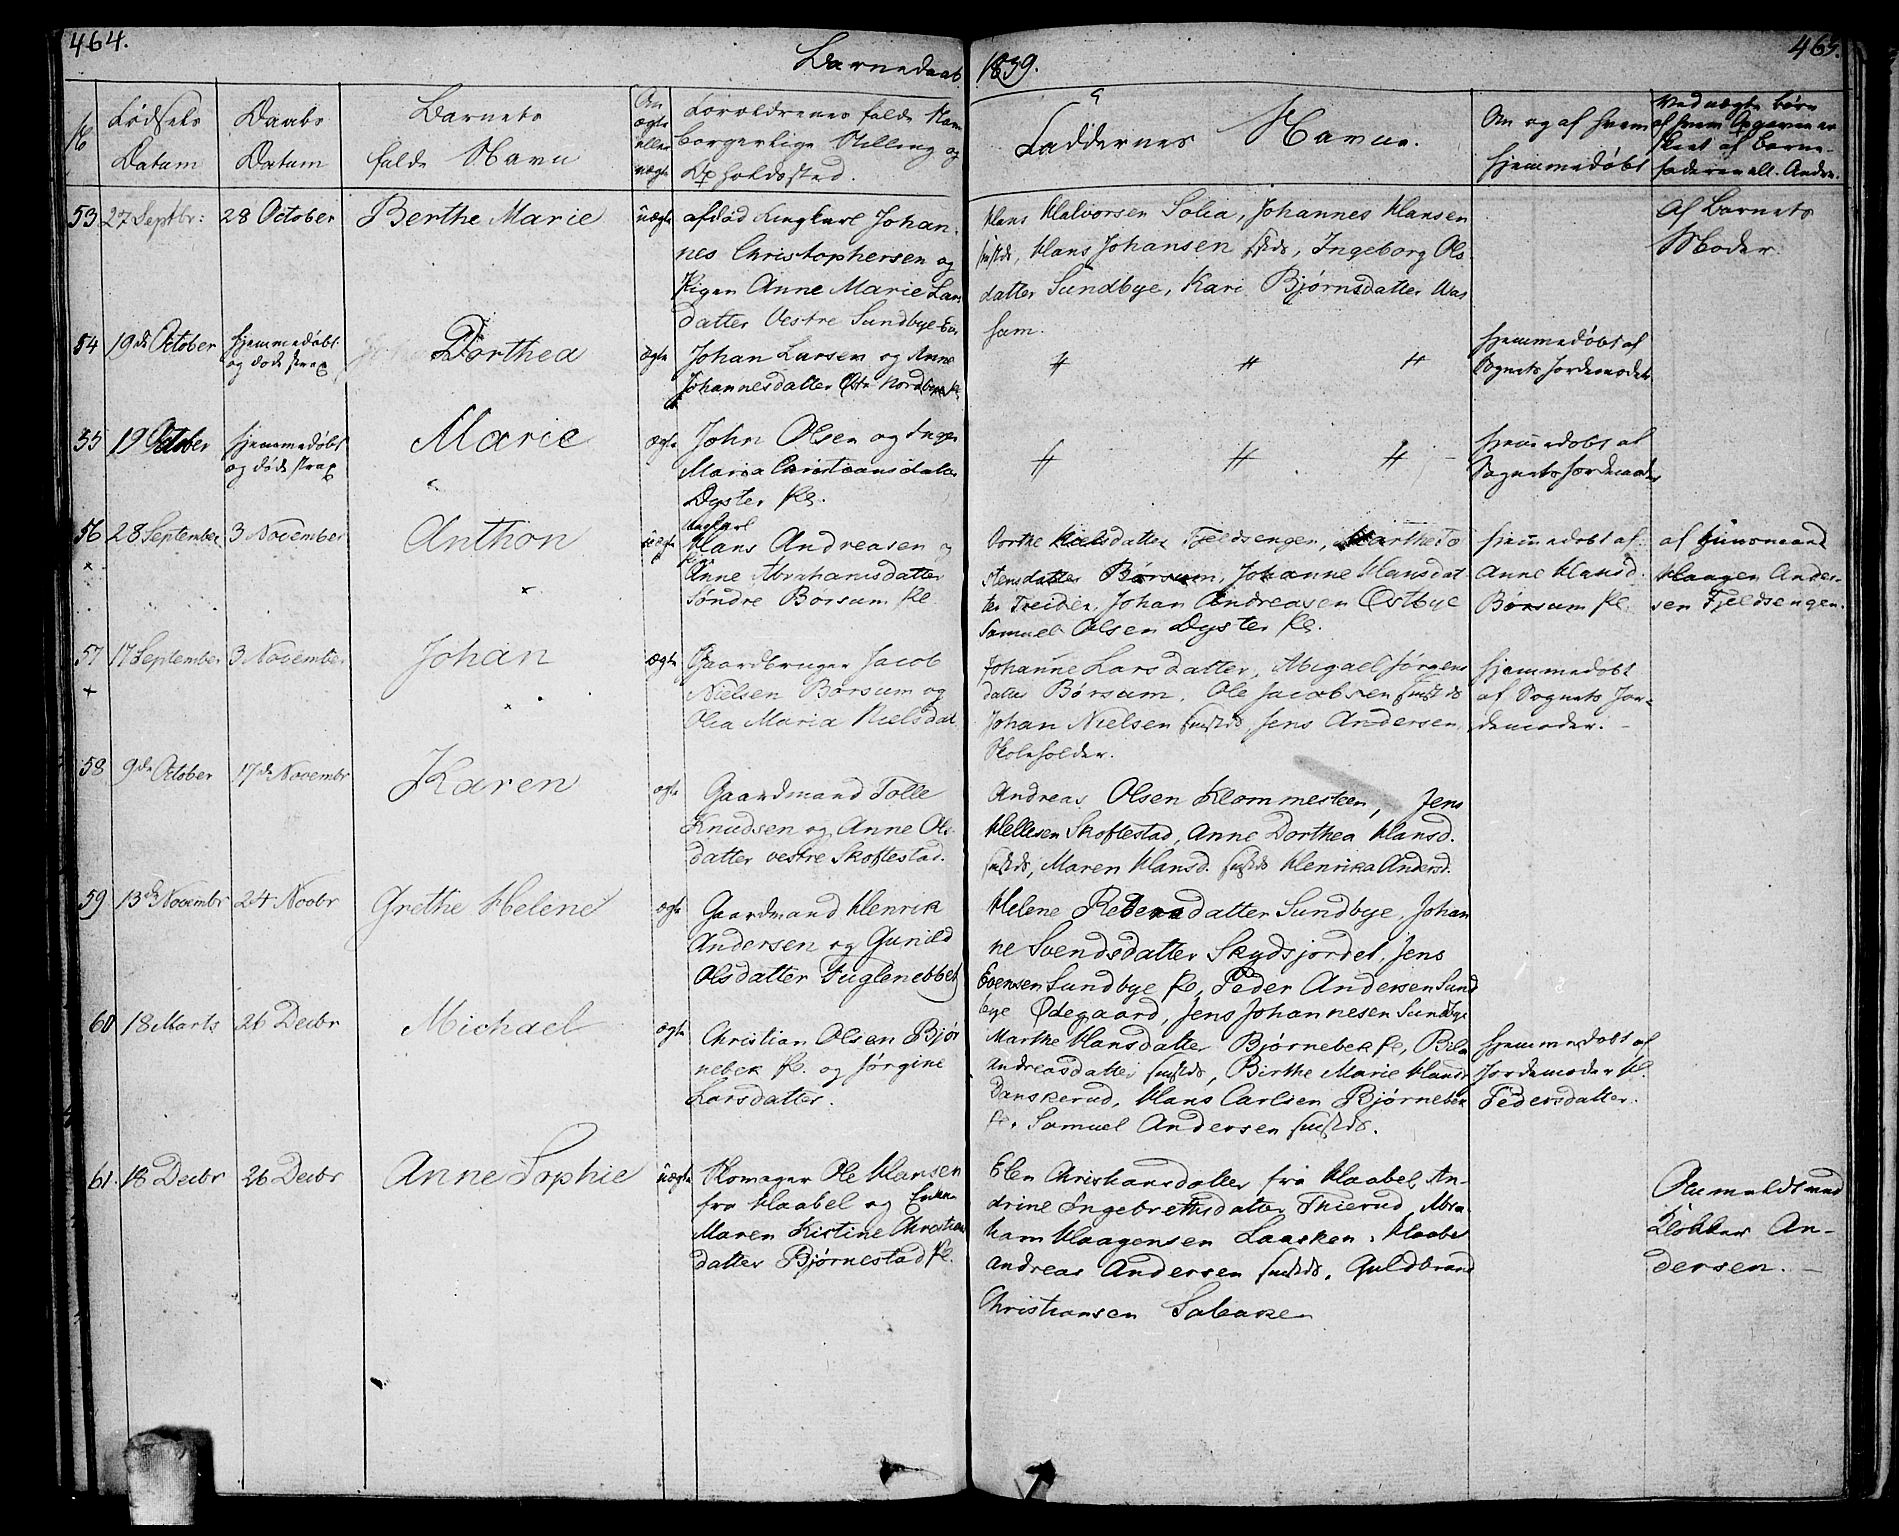 464.
Barnedaab
1839.
465.
No
Fødsels
Datum
Daabs
Datum
Barnets
fulde Navn
Om
ægte
eller
uægte
Forældrenes fulde Navn
borgerlige Stilling og
Opholdssted.
Faddernes Navne.
Om og af hvem
hjemmedøbt
Ved uægte børn
af hvem Opgaven er
skeet af Barne-
faderen ell. Andre.
53
27 Septbr:
28 October
Berthe Marie
uægte
afdød Ungkarl Johan-
nes Christophersen og
Pigen Anne Marie Lars
datter Vestre Sundbye
Hans Halvorsen Solia, Johannes Hansen
sammestds, Hans Johansen sstds, Ingeborg Ols
datter Sundbye, Kari Bjørnsdatter Aas
ham.
Af Barnets
Moder.
54
19de October
hjemmedøbt
og døde strax
Dorthea
ægte
Johan Larsen og Anne
Johannesdatter Østr Nordbye
hjemmedøbt af
Sognets Jordemoder
55
19 October
hjemmedøbt
og døde strax
Marie
ægte
John Olsen og Inger
Maria Christiansdatter
Dyster Pl.
hjemmedøbt af
Sognets Jordemoder
56
28 September
3 November
Anthon
uægte
Ungkarl
Hans Andreasen og
Pigen
Anne Abrahamsdatter
Søndre Borsum Pl.
Dorthe Nielsdatter Fjeldsengen, Marthe To
stensdatter Børsum, Johanne Hansdat
ter Treider, Johan Andreasen Østbye
Samuel Olsen Dyster Pl.
hjemmedøbt af
Anne Hansd.
Børsum Pl.
af Huusmand
Haagen Ander-
sen Fjeldsengen.
57
17 September
3 November
Johan
ægte
Gaardbruger Jacob
Nielsen Børsum og
Olea Maria Nielsdat
Johanne Larsdatter, Abigael Jørgens
datter Børsum, Ole Jacobsen sammestds
Johan Nielsen sammestds, Jens Andersen,
Skoleholder.
hjemmedøbt
af Sognets Jor-
demoder.
58
9de October
17de Novembr
Karen
ægte
Gaardmand Tolle
Knudsen og Anne Ols-
datter vestre Skoftestad.
Andreas Olsen Klommesteen, Jens
Hellesen Skoftestad, Anne Dorthea Hansd.
sammestds, Maren Hansd. sammestds Henrika Andersd.
59
13de Novembr
24 Novbr
Grethe Helene
ægte
Gaardmand Henrik
Andersen og Gunild
Olsdatter Fuglenebbet
Helene Pedersdatter Sundbye, Johan
ne Svendsdatter Skydsjordet, Jens
Evensen Sundbye Pl., Peder Andersen Sund
bye Ødegaard, Jens Johannesen Sundbye
60
18 Marts
26 Decbr
Michael
ægte
Christian Olsen Bjør
nebek Pl. og Jørgine
Larsdatter.
Marthe Hansdatter Bjørnebek Pl,
Andreasdatter sammestds, Birthe Marie Hansd
Danskerud, Hans Carlsen Bjørnebek
Pl. Samuel Andersen sammestds.
hjemmedøbt af
Jordemoder
Pedersdatter.
61.
18 Decbr
26 Decbr
Anne Sophie
uægte
Skomager Ole Hansen
fra Haabel og Enken
Maren Kistine Christians
datter Bjørnestad Pl.
Elen Christiansdatter fra Haabel, An-
drine Ingebretsdatter Thierud, Abra
ham Haagensen Laasken, Haabel
Andreas Andersen sammestds, Guldbrand
Christiansen
Anmeldt ved
Klokker An-
dersen.